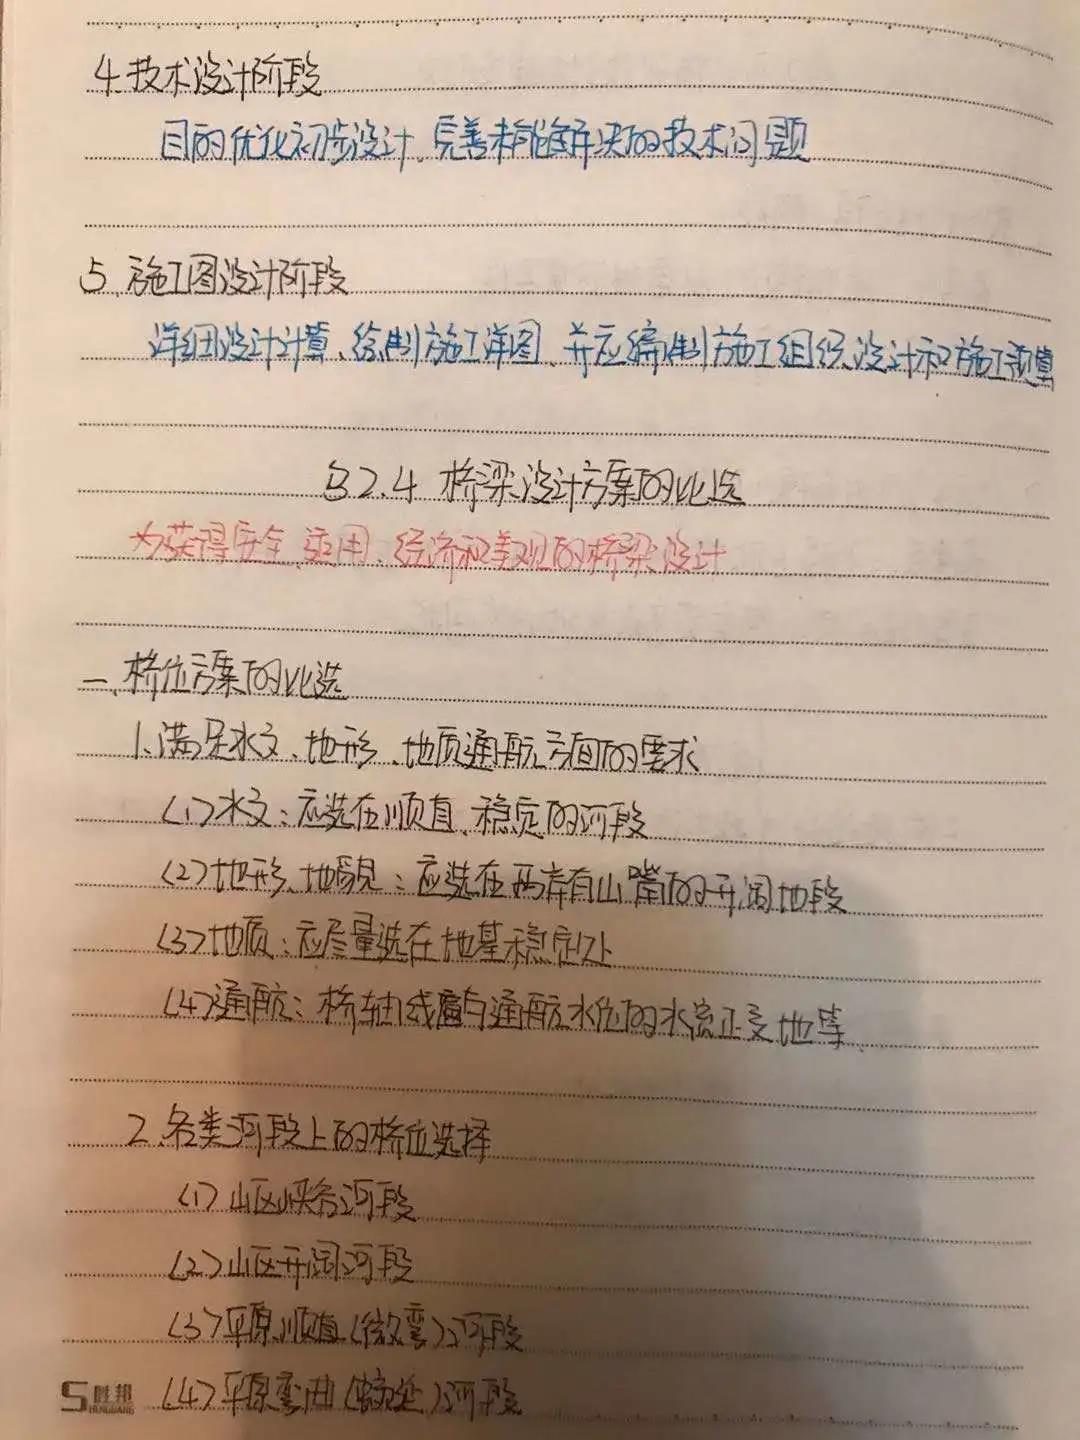 4.技术设计阶段
目的优化初步设计、完善未能解决的技术问题
5.施工图设计阶段
详细设计计算、绘制施工详图、并应编制施工组织设计和施工预算
§2.4 桥梁设计方案的比选
为获得安全、适用、经济和美观的桥梁设计
一、桥位方案的比选
1.满足水文、地形、地质通航方面的要求
(1)水文:应选在顺直、稳定的河段
(2)地形、地貌:应选在两岸有山嘴的开阔地段
(3)地质:应尽量选在地基稳定处
(4)通航:桥轴线应与通航水位的水流正交地等、
2.各类河段上的桥位选择
(1)山区峡谷河段
(2)山区开阔河段
(3)平原顺直(微弯)河段
(4)平原弯曲(蜿蜒)河段
胜邦
SHENGBANG